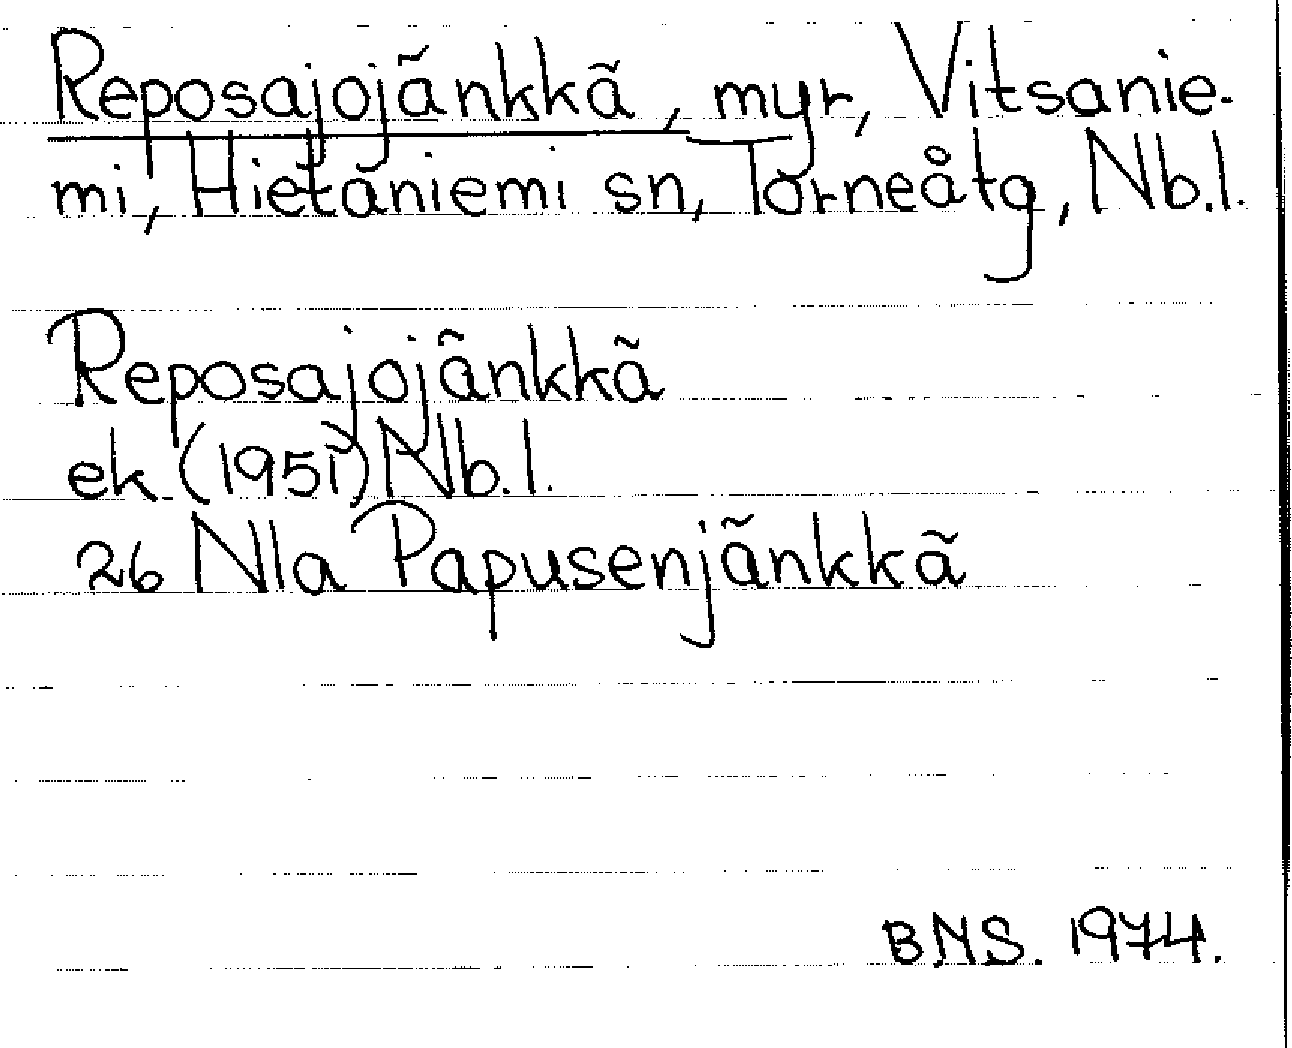 Reposajojänkkä, myr, Vitsanie-
mi, Hietaniemi sn, Torneåtg, Nb.l.
Reposajojänkkä
ek (1951) Nb.l.
26 Nla Papusenjänkkä
B.N.S. 1974.